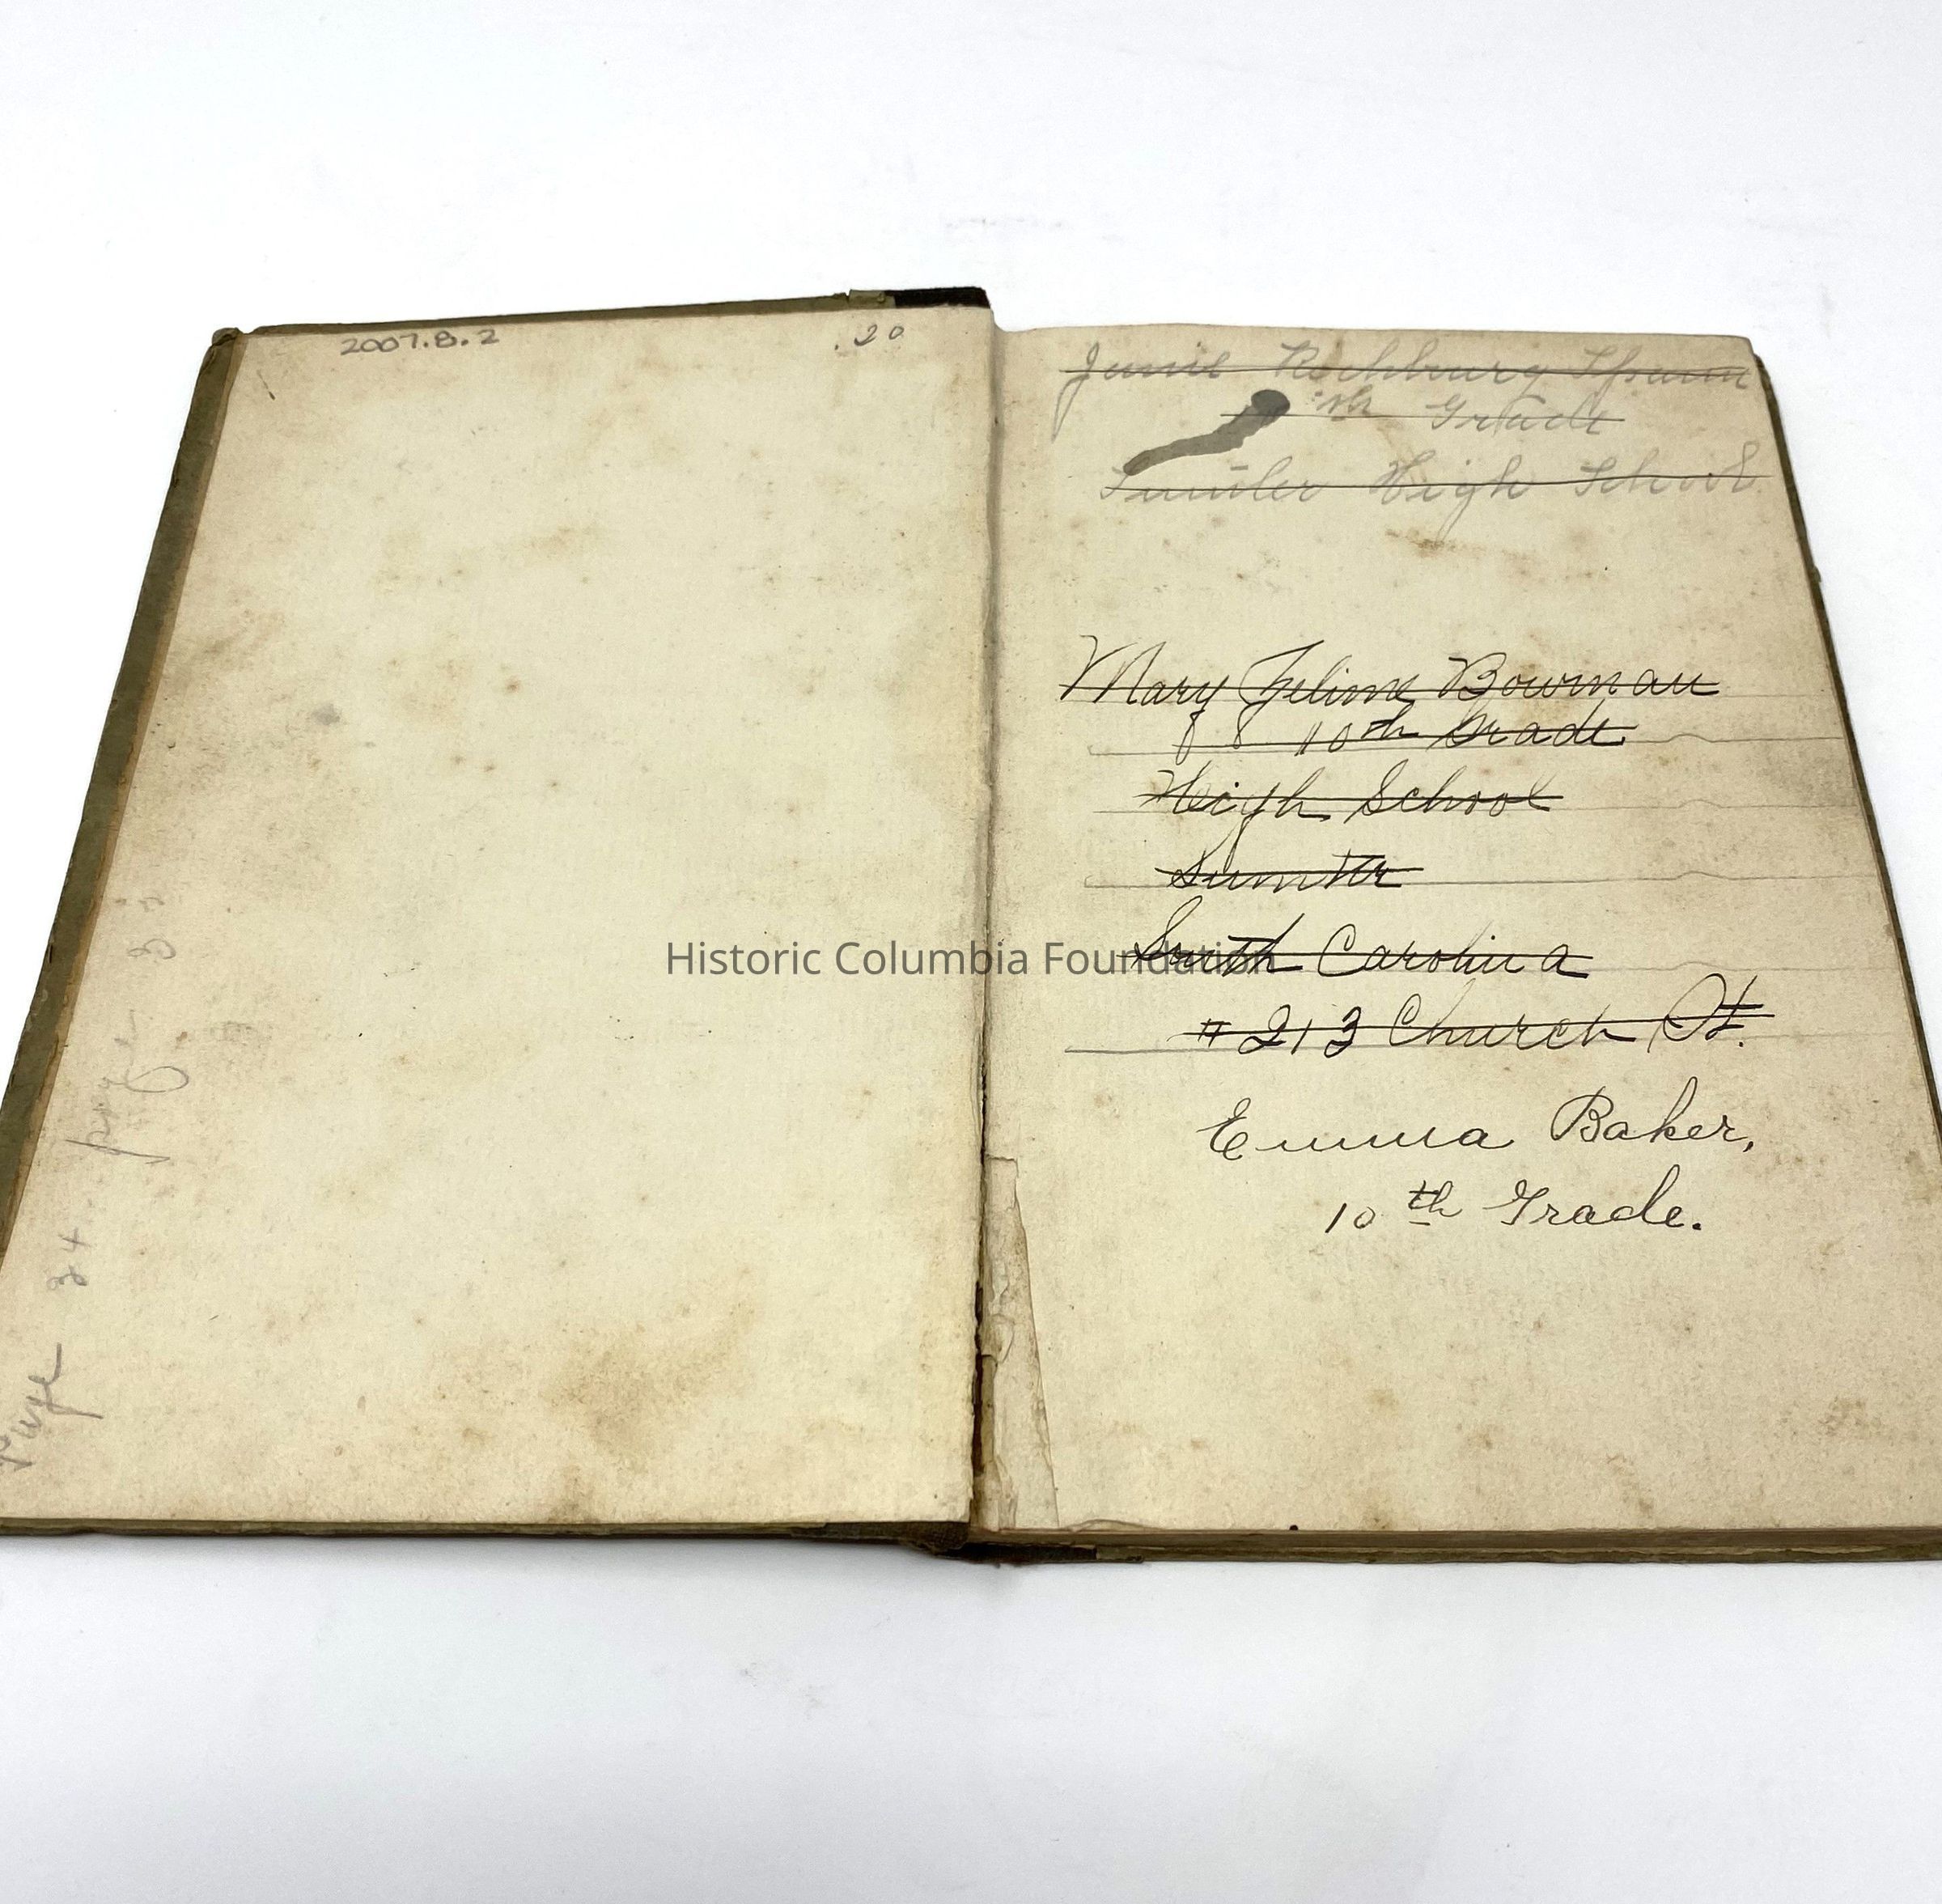 2007.8.2
.20
page 33
Page 34
Richburg Spann
th Grade
Sumter High School
Mary Bowman
10th Grade
High School
Sumter
South Carolina
# 213 Church St.
Emma Baker,
10th Grade.
Historic Columbia Foundation